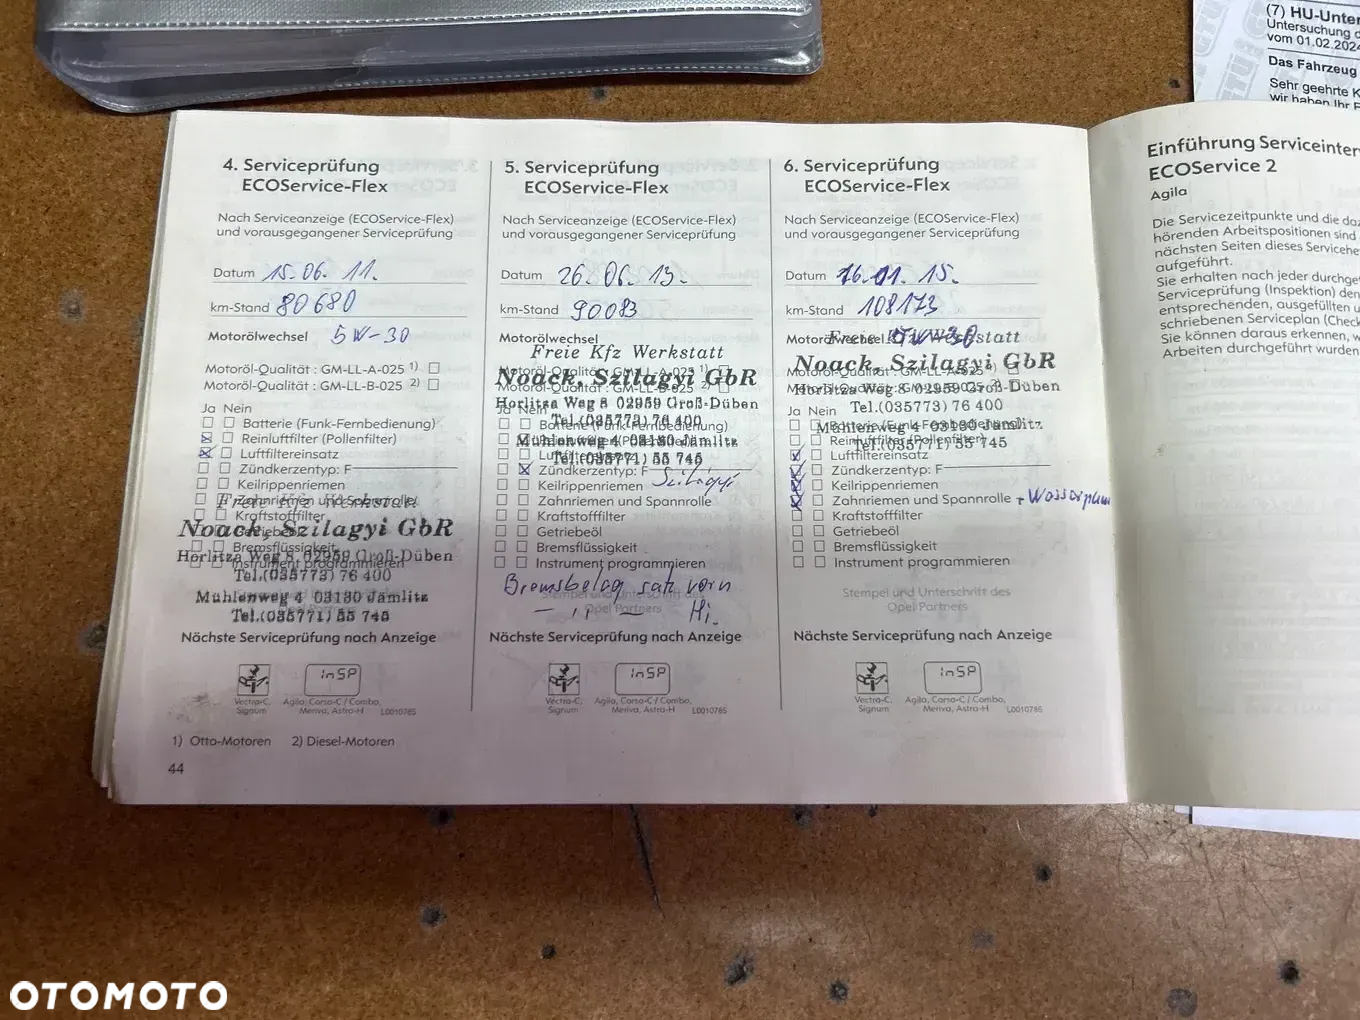 (7) HU-Unter
Untersuchung d
vom 01.02.2024
Das Fahrzeug
Sehr geehrte K
wir haben Ihr F
4. Serviceprüfung
ECOService-Flex
Nach Serviceanzeige (ECOService-Flex)
und vorausgegangener Serviceprüfung
Datum 15.06.11.
km-Stand 80680
Motorölwechsel 5W-30
Motoröl-Qualität : GM-LL-A-025 1)
Motoröl-Qualität : GM-LL-B-025 2)
Ja Nein
Batterie (Funk-Fernbedienung)
Reinluftfilter (Pollenfilter)
Luftfiltereinsatz
Zündkerzentyp: F
Keilrippenriemen
Zahnriemen und Spannrolle
Freie Kfz Werkstatt
Kraftstofffilter
Noack, Szilagyi GbR
Getriebeöl
Bremsflüssigkeit
Horlitza Weg 8 02959 Groß-Düben
Instrument programmieren
Tel.(035773) 76 400
Mühlenweg 4 03130 Jämlitz
Tel.(035771) 55 745
Nächste Serviceprüfung nach Anzeige
InSP
Vectra-C, Signum
Agila, Corsa-C / Combo, Meriva, Astra-H
L0010785
1) Otto-Motoren 2) Diesel-Motoren
44
5. Serviceprüfung
ECOService-Flex
Nach Serviceanzeige (ECOService-Flex)
und vorausgegangener Serviceprüfung
Datum 26.06.13.
km-Stand 90083
Motorölwechsel
Freie Kfz Werkstatt
Motoröl-Qualität : GM-LL-A-025 1)
Noack, Szilagyi GbR
Motoröl-Qualität : GM-LL-B-025 2)
Horlitza Weg 8 02959 Groß-Düben
Ja Nein
Tel.(035773) 76 400
Batterie (Funk-Fernbedienung)
Mühlenweg 4 03130 Jämlitz
Tel.(035771) 55 745
Zündkerzentyp: F
Keilrippenriemen Szilagyi
Zahnriemen und Spannrolle
Kraftstofffilter
Getriebeöl
Bremsflüssigkeit
Instrument programmieren
Bremsbelag satz vorn
Stempel und Unterschrift des
Opel Partners
— ,, — Hi.
Nächste Serviceprüfung nach Anzeige
InSP
Vectra-C, Signum
Agila, Corsa-C / Combo, Meriva, Astra-H
L0010785
6. Serviceprüfung
ECOService-Flex
Nach Serviceanzeige (ECOService-Flex)
und vorausgegangener Serviceprüfung
Datum 16.01.15.
km-Stand 108173
Motorölwechsel 5W-30
Freie Kfz Werkstatt
Noack, Szilagyi GbR
Motoröl-Qualität : GM-LL-A-025 1)
Motoröl-Qualität : GM-LL-B-025 2)
Horlitza Weg 8 02959 Groß-Düben
Tel.(035773) 76 400
Ja Nein
Batterie (Funk-Fernbedienung)
Mühlenweg 4 03130 Jämlitz
Reinluftfilter (Pollenfilter)
Tel.(035771) 55 745
Luftfiltereinsatz
Zündkerzentyp: F
Keilrippenriemen
Zahnriemen und Spannrolle + Wasserpum
Kraftstofffilter
Getriebeöl
Bremsflüssigkeit
Instrument programmieren
Stempel und Unterschrift des
Opel Partners
Nächste Serviceprüfung nach Anzeige
InSP
Vectra-C, Signum
Agila, Corsa-C / Combo, Meriva, Astra-H
L0010785
Einführung Serviceinter
ECOService 2
Agila
Die Servicezeitpunkte und die daz
hörenden Arbeitspositionen sind
nächsten Seiten dieses Servicehe
aufgeführt.
Sie erhalten nach jeder durchgef
Serviceprüfung (Inspektion) den
entsprechenden, ausgefüllten u
schriebenen Serviceplan (Check
Sie können daraus erkennen, w
Arbeiten durchgeführt wurden
OTOMOTO